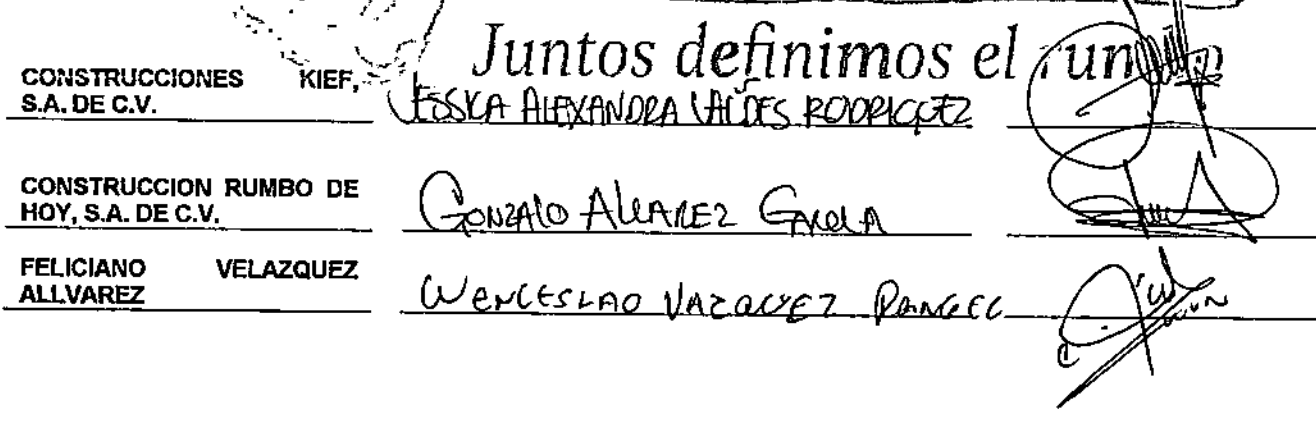 Juntos definimos el rumbo
CONSTRUCCIONES KIEF, S.A. DE C.V.
JESSICA ALEXANDRA VALDES RODRIGUEZ
CONSTRUCCION RUMBO DE HOY, S.A. DE C.V.
GONZALO ALVAREZ GARCIA
FELICIANO VELAZQUEZ ALLVAREZ
WENCESLAO VAZQUEZ RANGEL